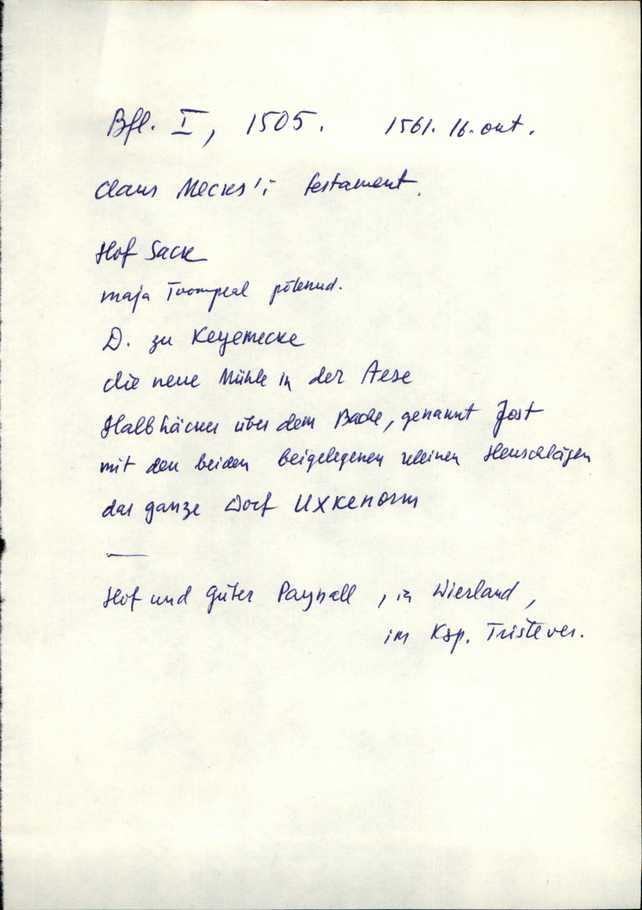 Bfl. I, 1505. 1561. 16. okt.
Claus Mecks'i testament.
Hof Sack
maja Toompeal põlenud.
D. zu Keyemecke
die neue Mühle in der Aese
Halbhäcker über dem Bache, genannt Jost
mit den beiden beigelegenen kleinen Heuschlägen
das ganze Dorf Uxkenorm
Hof und Güter Payhall, in Wierland,
im Ksp. Tristever.